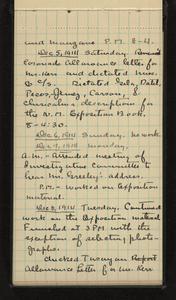 and Mangano P.M. 8-4.
Dec 5, 1914 Saturday.
Colorado Allowance letter for
Mr. Kerr and dictated
Dictated Gila, Datil,
Pecos, Jemez, Carson, &
descriptions for
the N.M. Exposition Book.
8-4:30.
Dec 6, 1914 Sunday. No work.
Dec 7, 1914 Monday,
A.M. - Attended meeting of
Investigative Committee to
hear Mr. address.
P.M. - Worked on Exposition
material.
Dec 8, 1914 Tuesday. Continued
work on the Exposition material
Finished at 3 PM with the
exception of selecting photo-
graphs.
Checked Report
Allowance Letter for Mr. Kerr